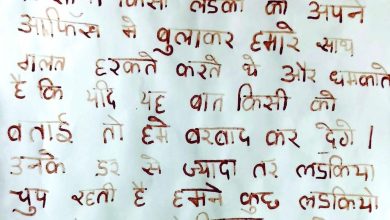 किसी लडकी को अपने
आफिस मे बुलाकर हमारे साथ
गलत हरकते करते थे और धमकाते
है कि यदि यह बात किसी को
बताई तो हमे बरबाद कर देगे ।
उनके डर से ज्यादा तर लडकिया
चुप रहती है हमने कुछ लडकिया